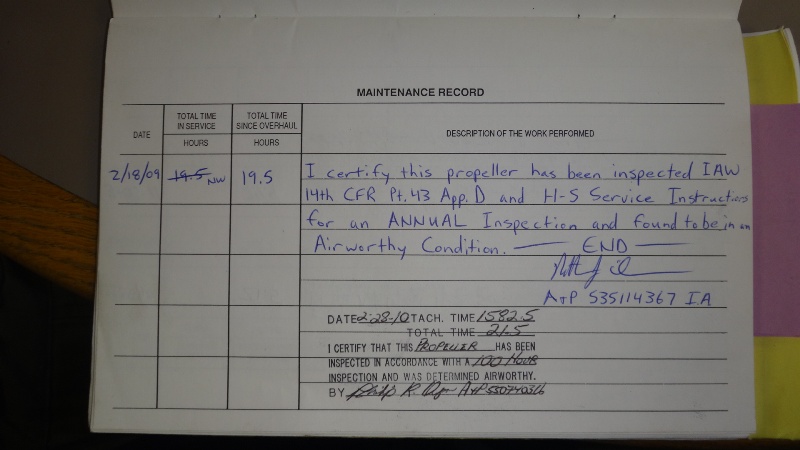 MAINTENANCE RECORD
DATE
TOTAL TIME
IN SERVICE
HOURS
TOTAL TIME
SINCE OVERHAUL
HOURS
DESCRIPTION OF THE WORK PERFORMED
2/18/09 19.5 NW 19.5 I certify this propeller has been inspected IAW
14th CFR Pt. 43 App. D and H-S Service Instructions
for an ANNUAL Inspection and found to be in an
Airworthy Condition. — END —
A+P 535114367 IA
DATE 2-28-10 TACH. TIME 1582.5
TOTAL TIME 21.5
I CERTIFY THAT THIS PROPELLER HAS BEEN
INSPECTED IN ACCORDANCE WITH A 100 HOUR
INSPECTION AND WAS DETERMINED AIRWORTHY.
BY Philip R. A+P